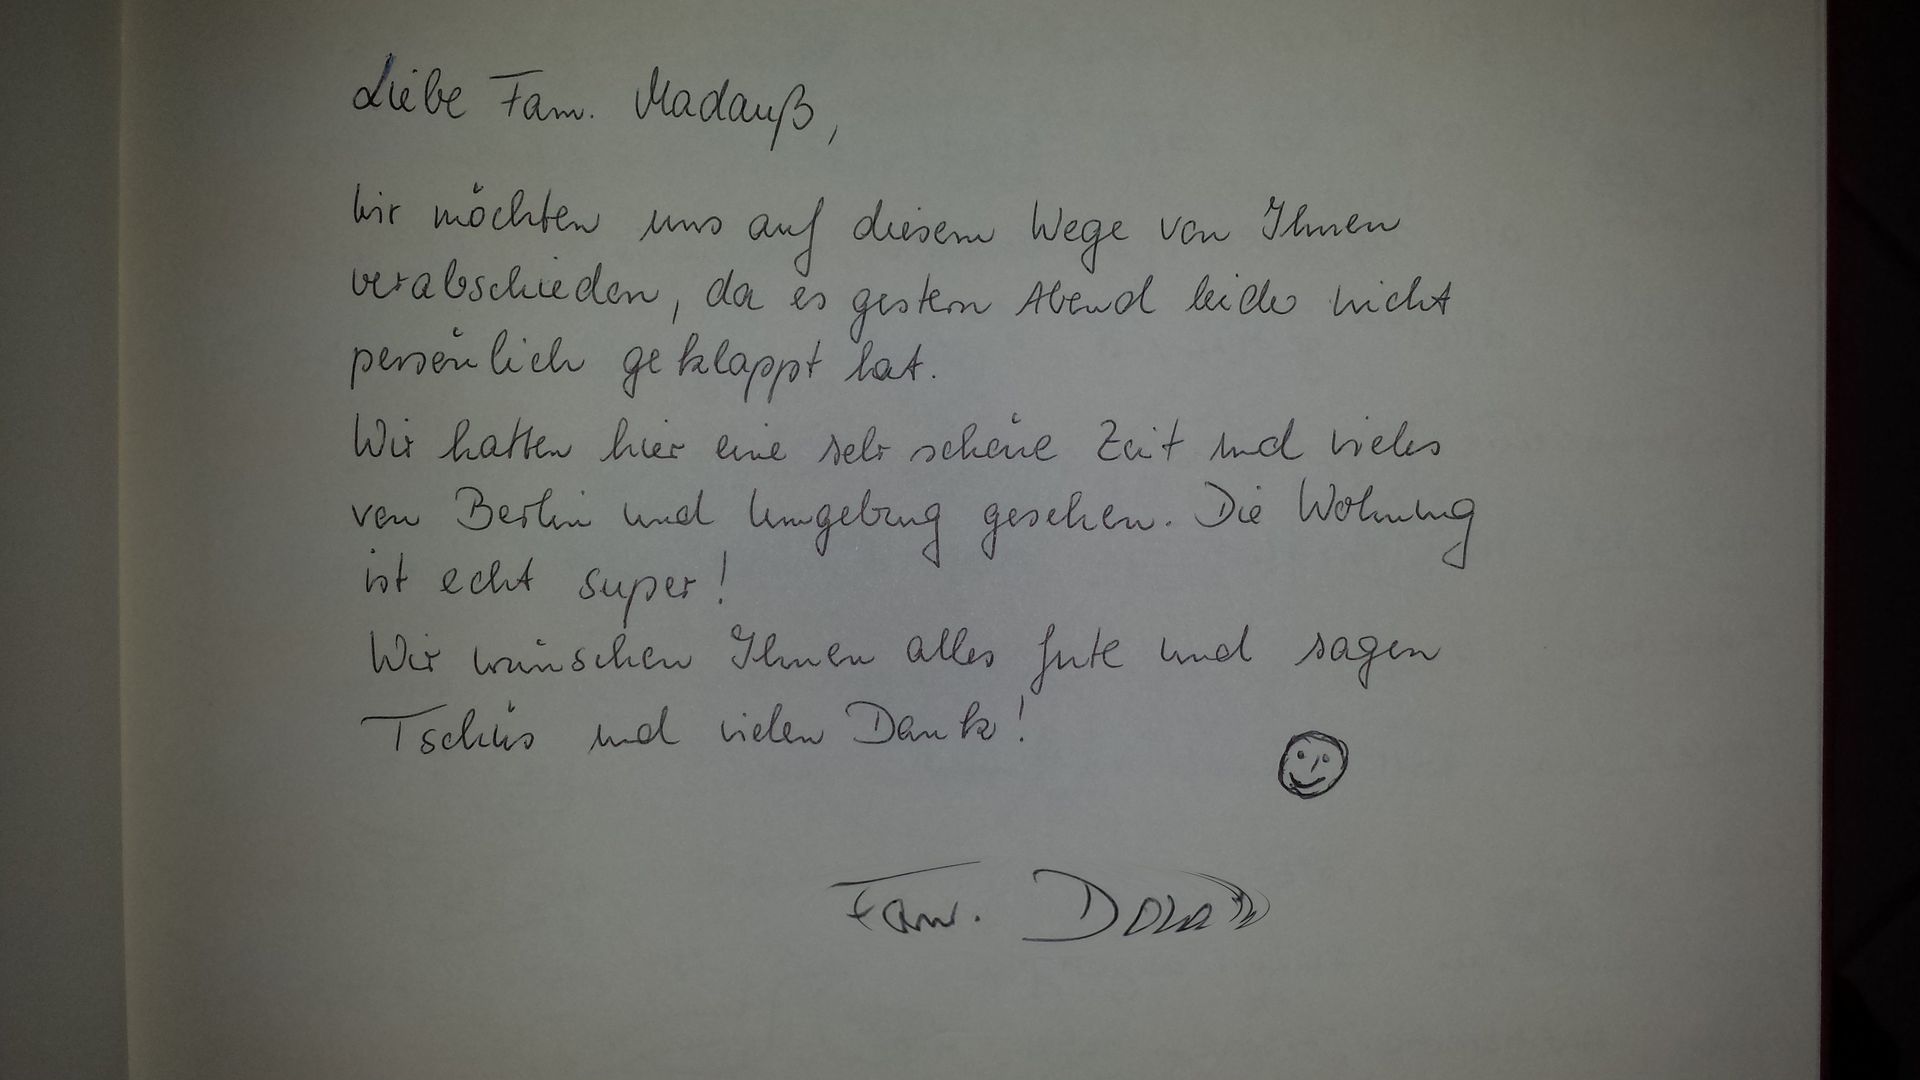 Liebe Fam. Madauß,
wir möchten uns auf diesem Wege von Ihnen
verabschieden, da es gestern Abend leider nicht
persönlich geklappt hat.
Wir hatten hier eine sehr schöne Zeit und vieles
von Berlin und Umgebung gesehen. Die Wohnung
ist echt super!
Wir wünschen Ihnen alles Gute und sagen
Tschüs und vielen Dank!
Fam.